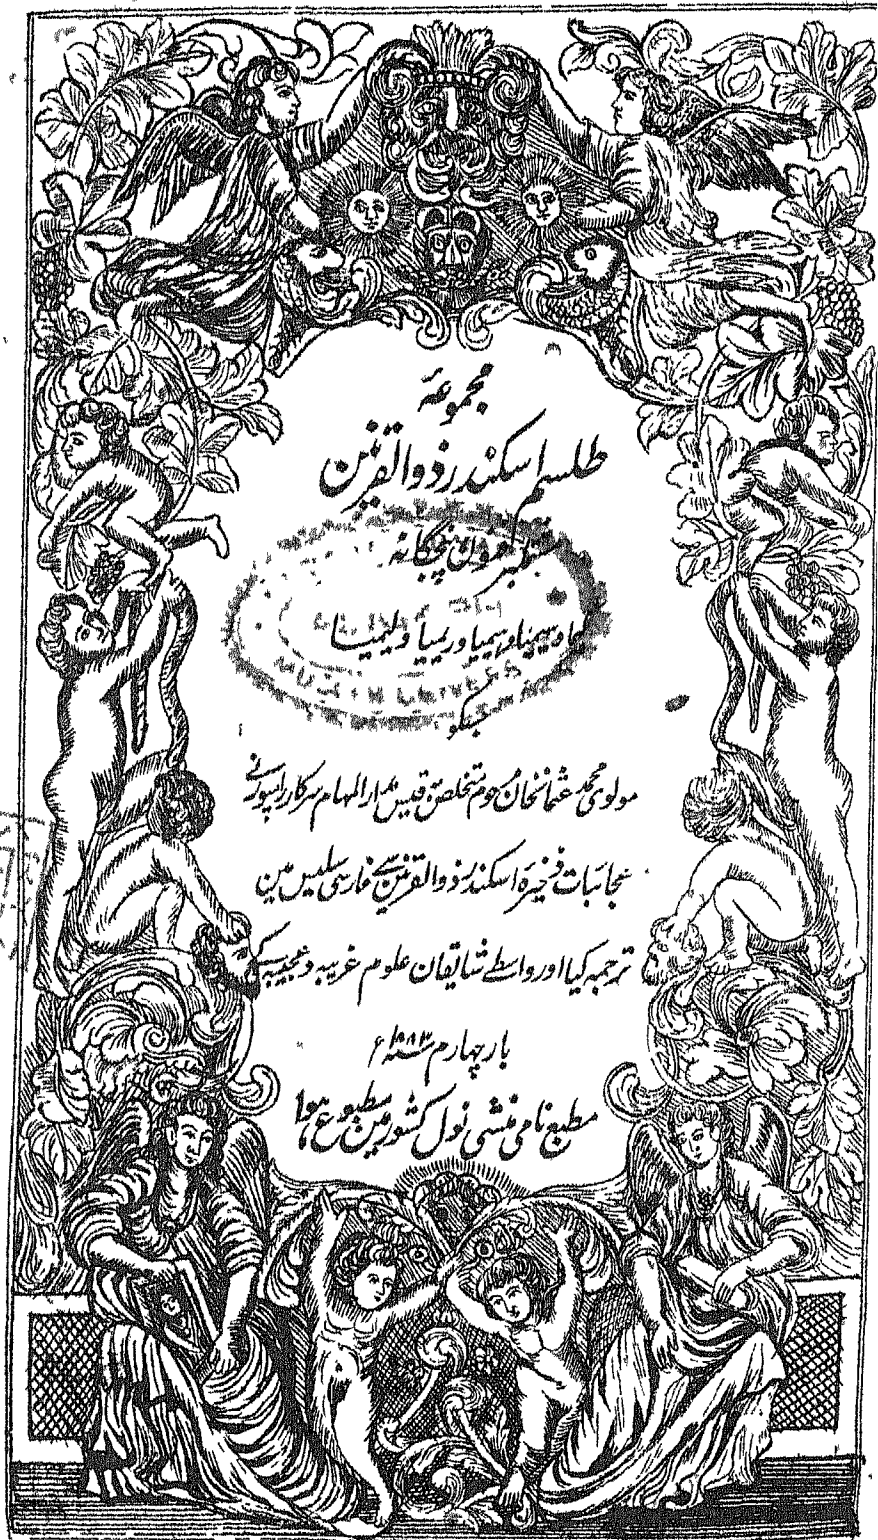 مجموعۂ
طلسم اسکندر ذوالقرنین
علوم پنجگانہ
وسیمیا وریمیا ولیمیا
جسکو
مولوی محمد عثمانخان مرحوم متخلص قیس مدارالمہام سرکار رامپور نے
عجائبات ذخیرۂ اسکندر ذوالقرنین سے فارسی سلیس مین
ترجمہ کیا اور واسطے شائقان علوم غریبہ وعجیبہ کے
بار چہارم سنہ ۱۸۸۳ ء
مطبع نامی منشی نول کشور مین مطبوع ہوا